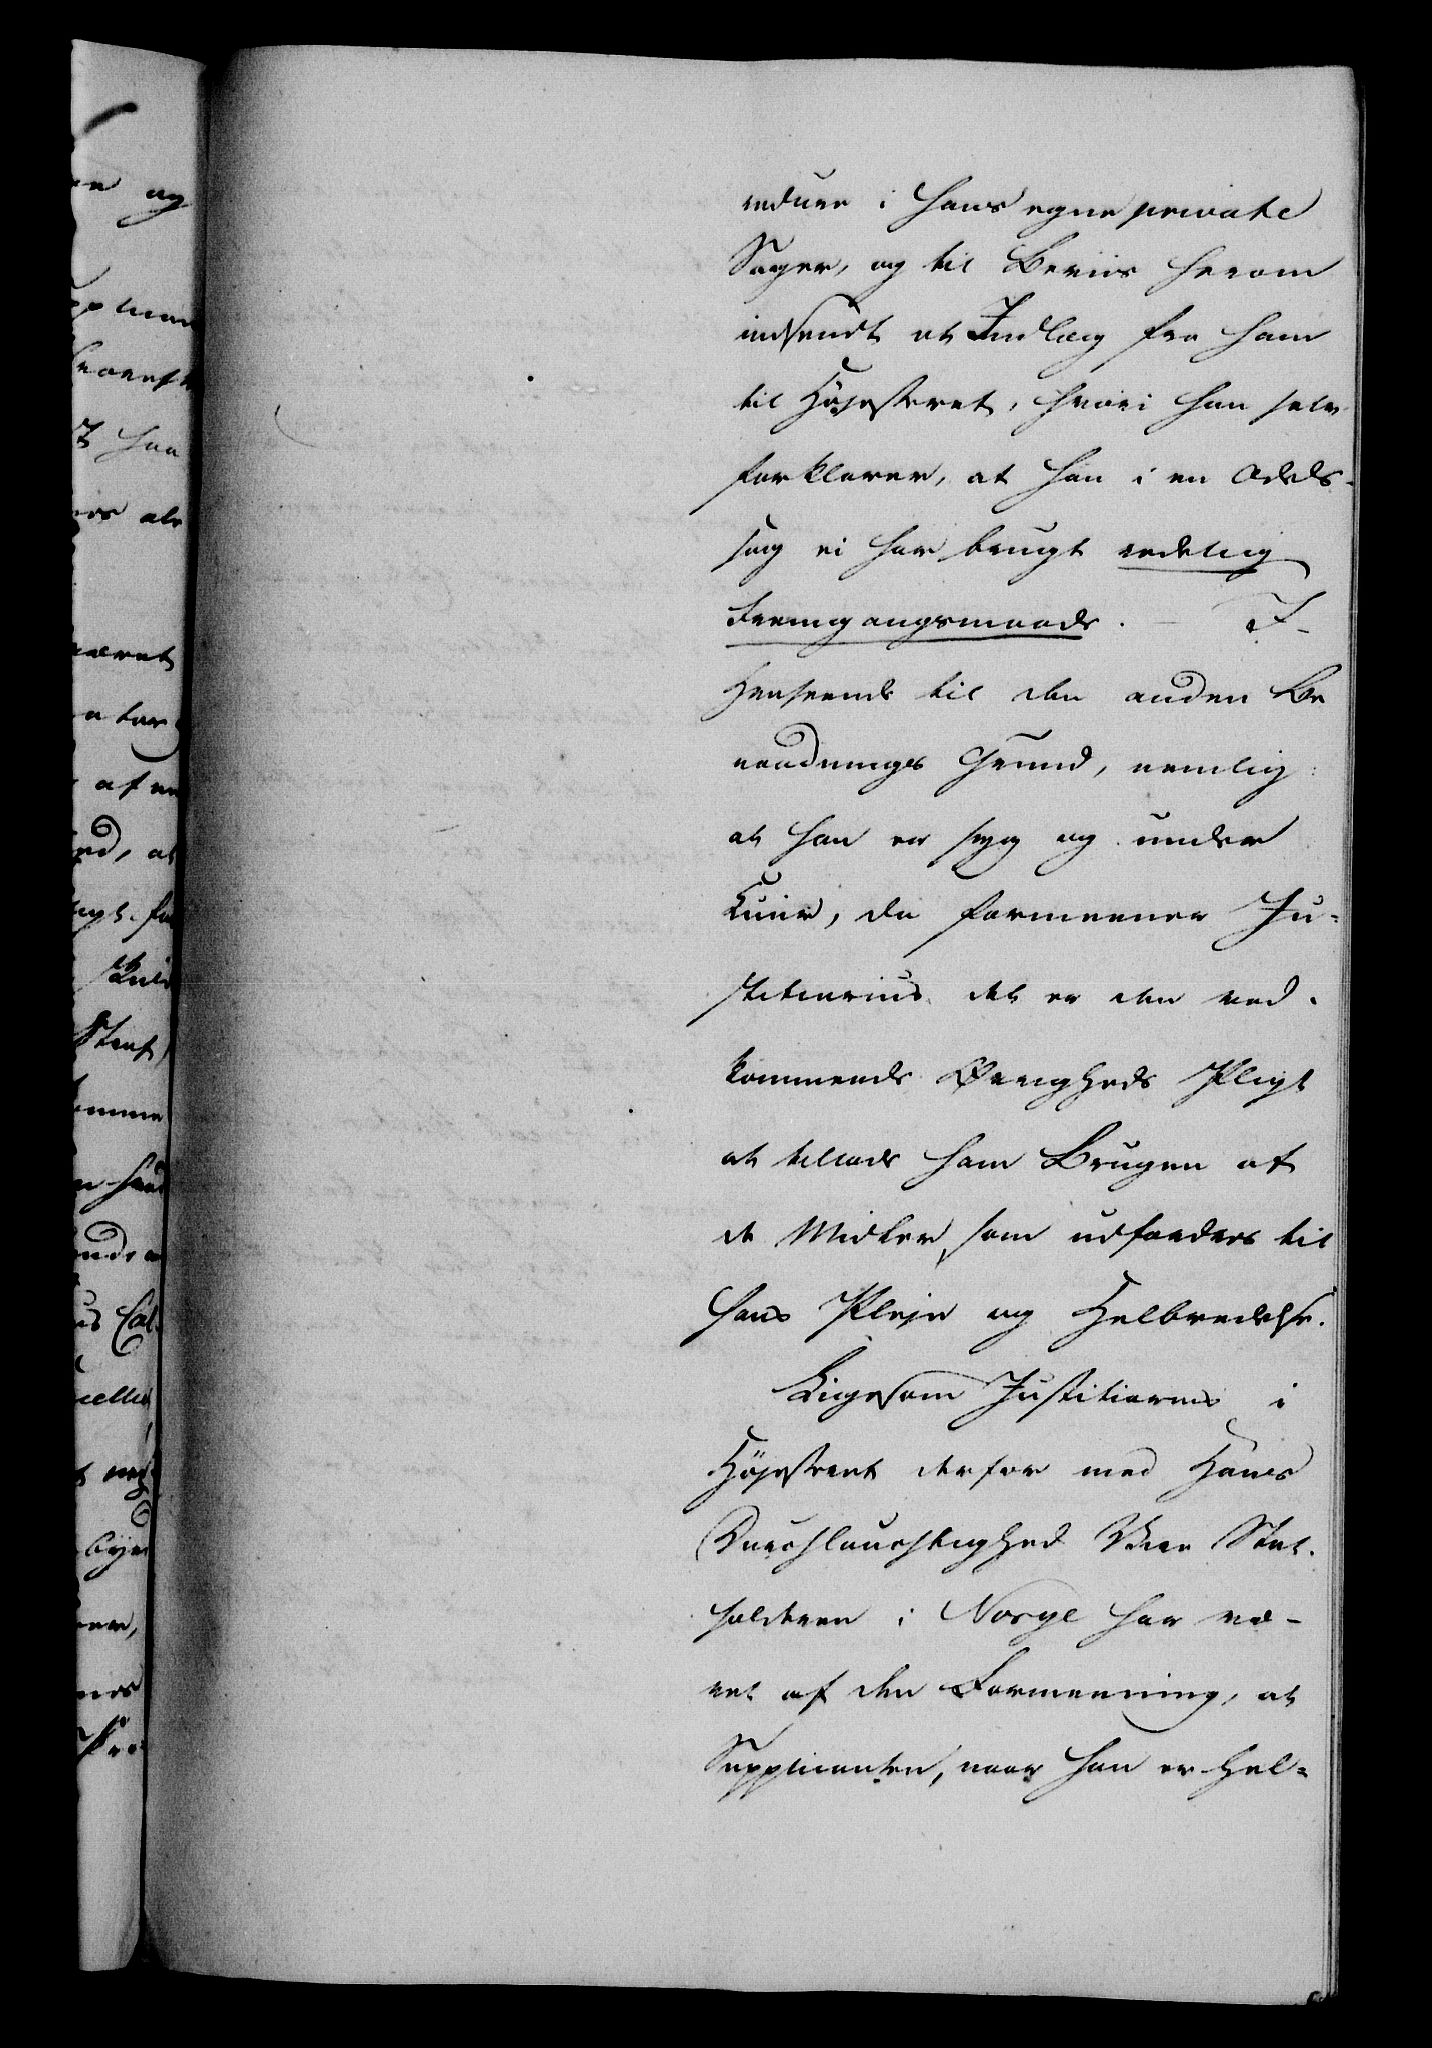 cedure i hans egne private
Sager, og til Beviis herom
indsendt et Indlæg fra ham
til Höjesteret, hvori han selv
forklarer, at han i en Odels-
sag ei har brugt redelig
Fremgangsmaade. – I
Henseende til den anden Be
naadnings Grund, nemlig
at han er syg og under
Kuur, da formeener Ju-
stitiarius, det er den ved-
kommende Øvrigheds Pligt
at tillade ham Brugen af
de Midler, som udfordres til
hans Pleje og Helbredelse.
Ligesom Justitiarius i
Höjesteret derfor med Hans
Durchlauchtighed Vice Stat-
holderen i Norge har væ-
ret af den Formeening, at
Supplicanten, naar han er hel-